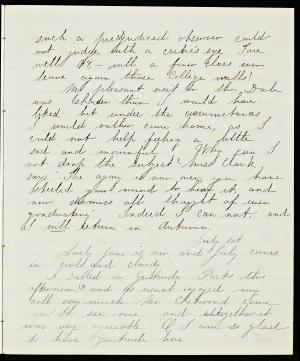 such a prejudiced observer could
not judge with a critic's eye. Fare
well '84 - will a finer class ever
leave again those College walls!
My pleasant visit in the Dale
was shorter than I would have
liked but under the circumstances
I would rather come home, as I
could not help feeling a little
sad and mournful. Why can I
not drop the subject? Miss Clark
says "The agony is now over, you have
steeled your mind to bear it, and
now dismiss all thought of ever
graduating" Indeed I can not and
I will return in Autumn.
July 1st
Lovely June is over, and July comes
in cold and cloudy.
I called on Gertrude Parks this
afternoon, and as usual enjoyed my
call very much. Mr. Chitwood came
in to see me, and altogether it
was very agreeable. I am so glad
to have Gertrude here